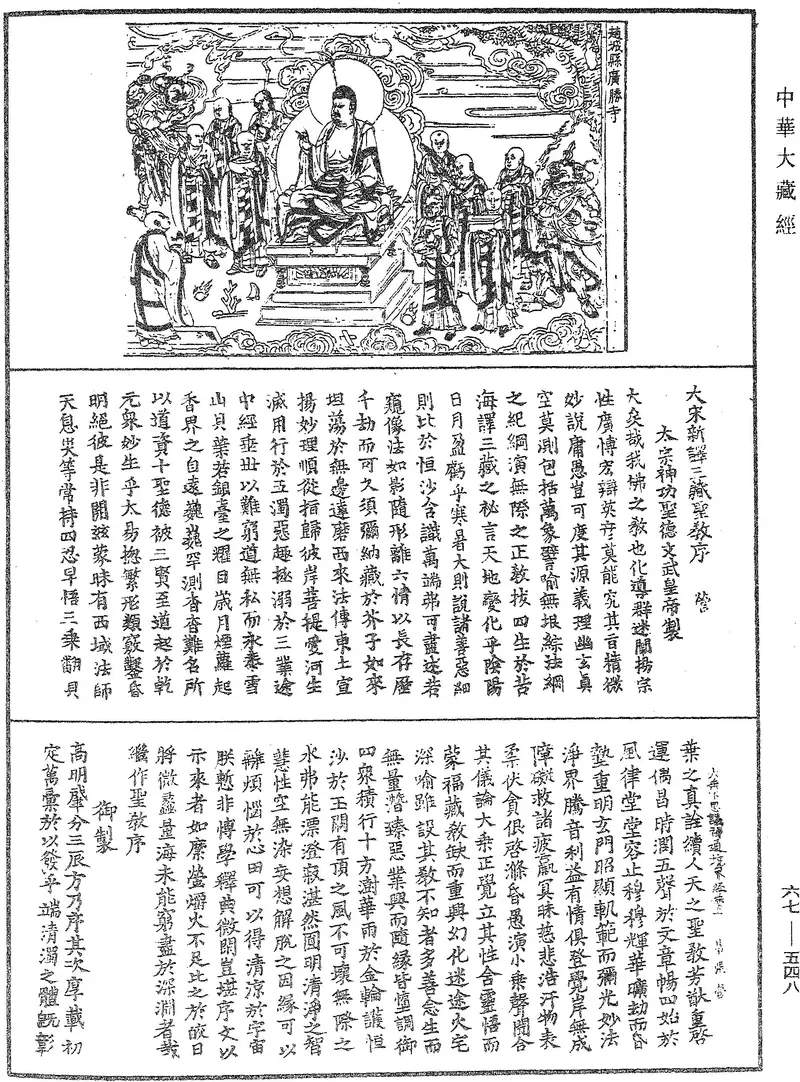 中華大藏經
六七—五四八
趙城縣廣勝寺
大宋新譯三藏聖教序 營
太宗神功聖德文武皇帝製
大矣哉我佛之教也化導群迷闡揚宗
性廣博宏辯英彥莫能究其旨精微
妙說庸愚豈可度其源義理幽玄真
空莫測包括萬象譬喻無垠綜法網
之紀綱演無際之正教拔四生於苦
海譯三藏之祕言天地變化乎陰陽
日月盈虧乎寒暑大則說諸善惡細
則比於恒沙含識萬端弗可盡述若
窺像法如影隨形離六情以長存歷
千劫而可久須彌納藏於芥子如來
坦蕩於無邊達磨西來法傳東土宣
揚妙理順從指歸彼岸菩提愛河生
滅用行於五濁惡趣拯溺於三業途
中經垂世以難窮道無私而永泰雪
山貝葉若銀臺之耀日歲月煙蘿起
香界之自遠巍巍罕測杳杳難名所
以道資十聖德被三賢至道起於乾
元衆妙生乎太易揔繁形類竅鑿昏
明絕彼是非開茲蒙昧有西域法師
天息災等常持四忍早悟三乘翻貝
葉之真詮續人天之聖教芳猷重啓
運偶昌時潤五聲於文章暢四始於
風律堂堂容止穆穆輝華曠劫而昏
墊重明玄門昭顯軌範而彌光妙法
淨界騰音利益有情俱登覺岸無成
障礙救諸疲羸冥昧慈悲浩汗物表
柔伏貪俱啓滌昏愚演小乘聲聞合
其儀論大乘正覺立其性含靈悟而
蒙福藏教缺而重興幻化迷途火宅
深喻雖設其教不知者多善念生而
無量潛臻惡業興而隨緣皆墮調御
四衆積行十方澍華雨於金輪護恒
沙於玉闕有頂之風不可壞無際之
水弗能漂澄寂湛然圓明清淨之智
慧性空無染妄想解脫之因緣可以
離煩惱於心田可以得清涼於宇宙
朕慙非博學釋典微閑豈堪序文以
示來者如縻螢爝火不足比之於皎日
將微蠡量海未能窮盡於深淵者哉
繼作聖教序
御製
高明肇分三辰方乃序其次厚載初
定萬彙於以發乎端清濁之體旣彰